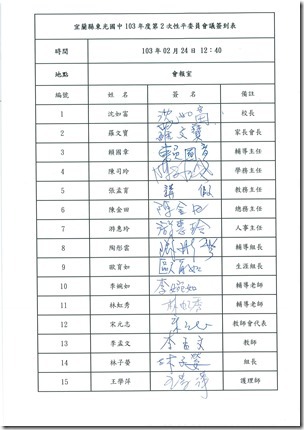 宜蘭縣東光國中 103 年度第 2 次性平委員會議簽到表
時間 103 年 02 月 24 日 12:40
地點 會報室
編號 姓名 簽名 備註
1 沈如富 沈如富 校長
2 羅文寶 羅文寶 家長會長
3 賴國章 賴國章 輔導主任
4 陳司玲 學務主任
5 張孟育 請假 教務主任
6 陳金田 陳金田 總務主任
7 游惠玲 游惠玲 人事主任
8 陶彤雲 輔導組長
9 歐育如 歐育如 生涯組長
10 李婉如 李婉如 輔導老師
11 林虹秀 林虹秀 輔導老師
12 宋元志 教師會代表
13 李孟文 李孟文 教師
14 林子縈 林子縈 組長
15 王學萍 護理師